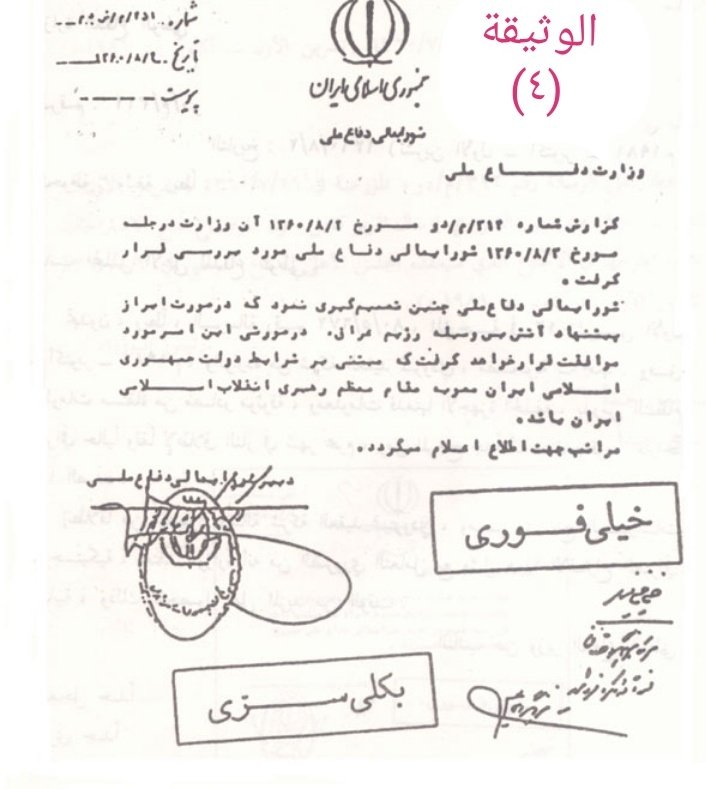 الوثيقة
(٤)
شماره
تاریخ ١٣٦٠/٨/
پیوست
جمهوری اسلامی ایران
شورایعالی دفاع ملی
وزارت دفــاع ملی
گزارش شماره ٢/٢١٤/دو مــورخ ١٣٦٠/٨/٢ آن وزارت درجلسه
مــورخ ١٣٦٠/٨/٣ شورایعالی دفــاع ملی مورد بررســی قــرار
گرفت ٠
شورایعالی دفاع‌ملی چنین تصمیم‌گیری نمود که درصورت ابراز
پیشنهاد آتش‌بس‌وسیله رژیم عراق، درصورتی این امــر مورد
موافقت قرارخواهد گرفت‌که مبتنی بر شرایط دولت جمهــوری
اسـلامی ایـران مصوبه مقـام معظم رهبـری انقلاب اسـلامـی
ایـران باشد٠
مراتب جهت اطلاع اعـلام میگردد٠
دبیر شورایعالی دفاع ملــی
خیلی فــوری
بکلی ســری